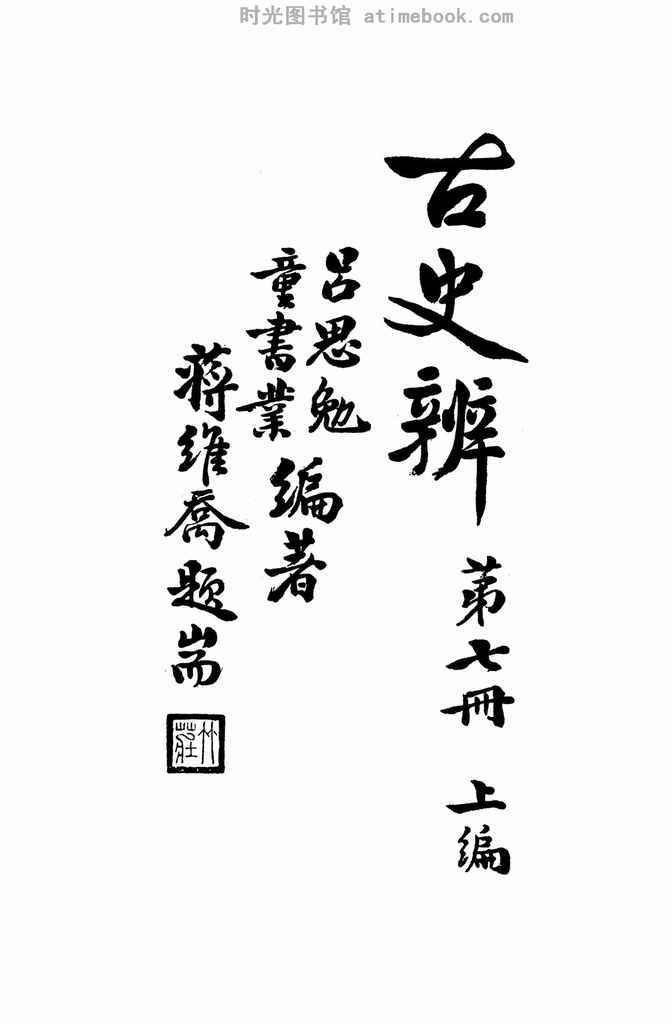 时光图书馆 atimebook.com
古史辨 第七冊 上編
呂思勉
童書業 編著
蔣維喬題耑
竹莊